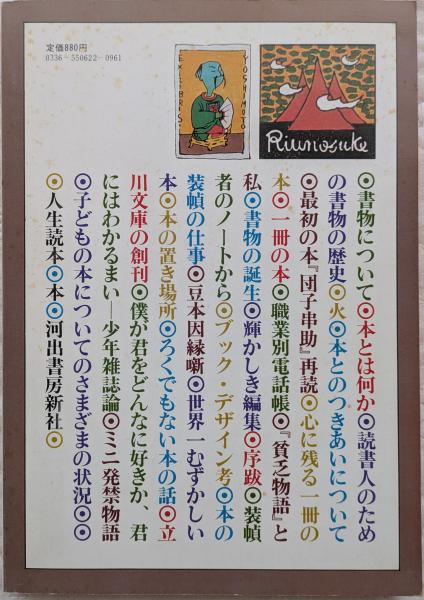 定価880円
0336-550622-0961
EXLIBRIS
YOSHIMOTO
Riunosuke
◎書物について◎本とは何か◎読書人のため
の書物の歴史◎火◎本とのつきあいについて
◎最初の本『団子串助』再読◎心に残る一冊の
本◎一冊の本◎職業別電話帳◎『貧乏物語』と
私◎書物の誕生◎輝かしき編集◎序跋◎装幀
者のノートから◎ブック・デザイン考◎本の
装幀の仕事◎豆本因縁噺◎世界一むずかしい
本◎本の置き場所◎ろくでもない本の話◎立
川文庫の創刊◎僕が君をどんなに好きか、君
にはわかるまい―少年雑誌論◎ミニ発禁物語
◎子どもの本についてのさまざまの状況◎◎
◎人生読本◎本◎河出書房新社◎